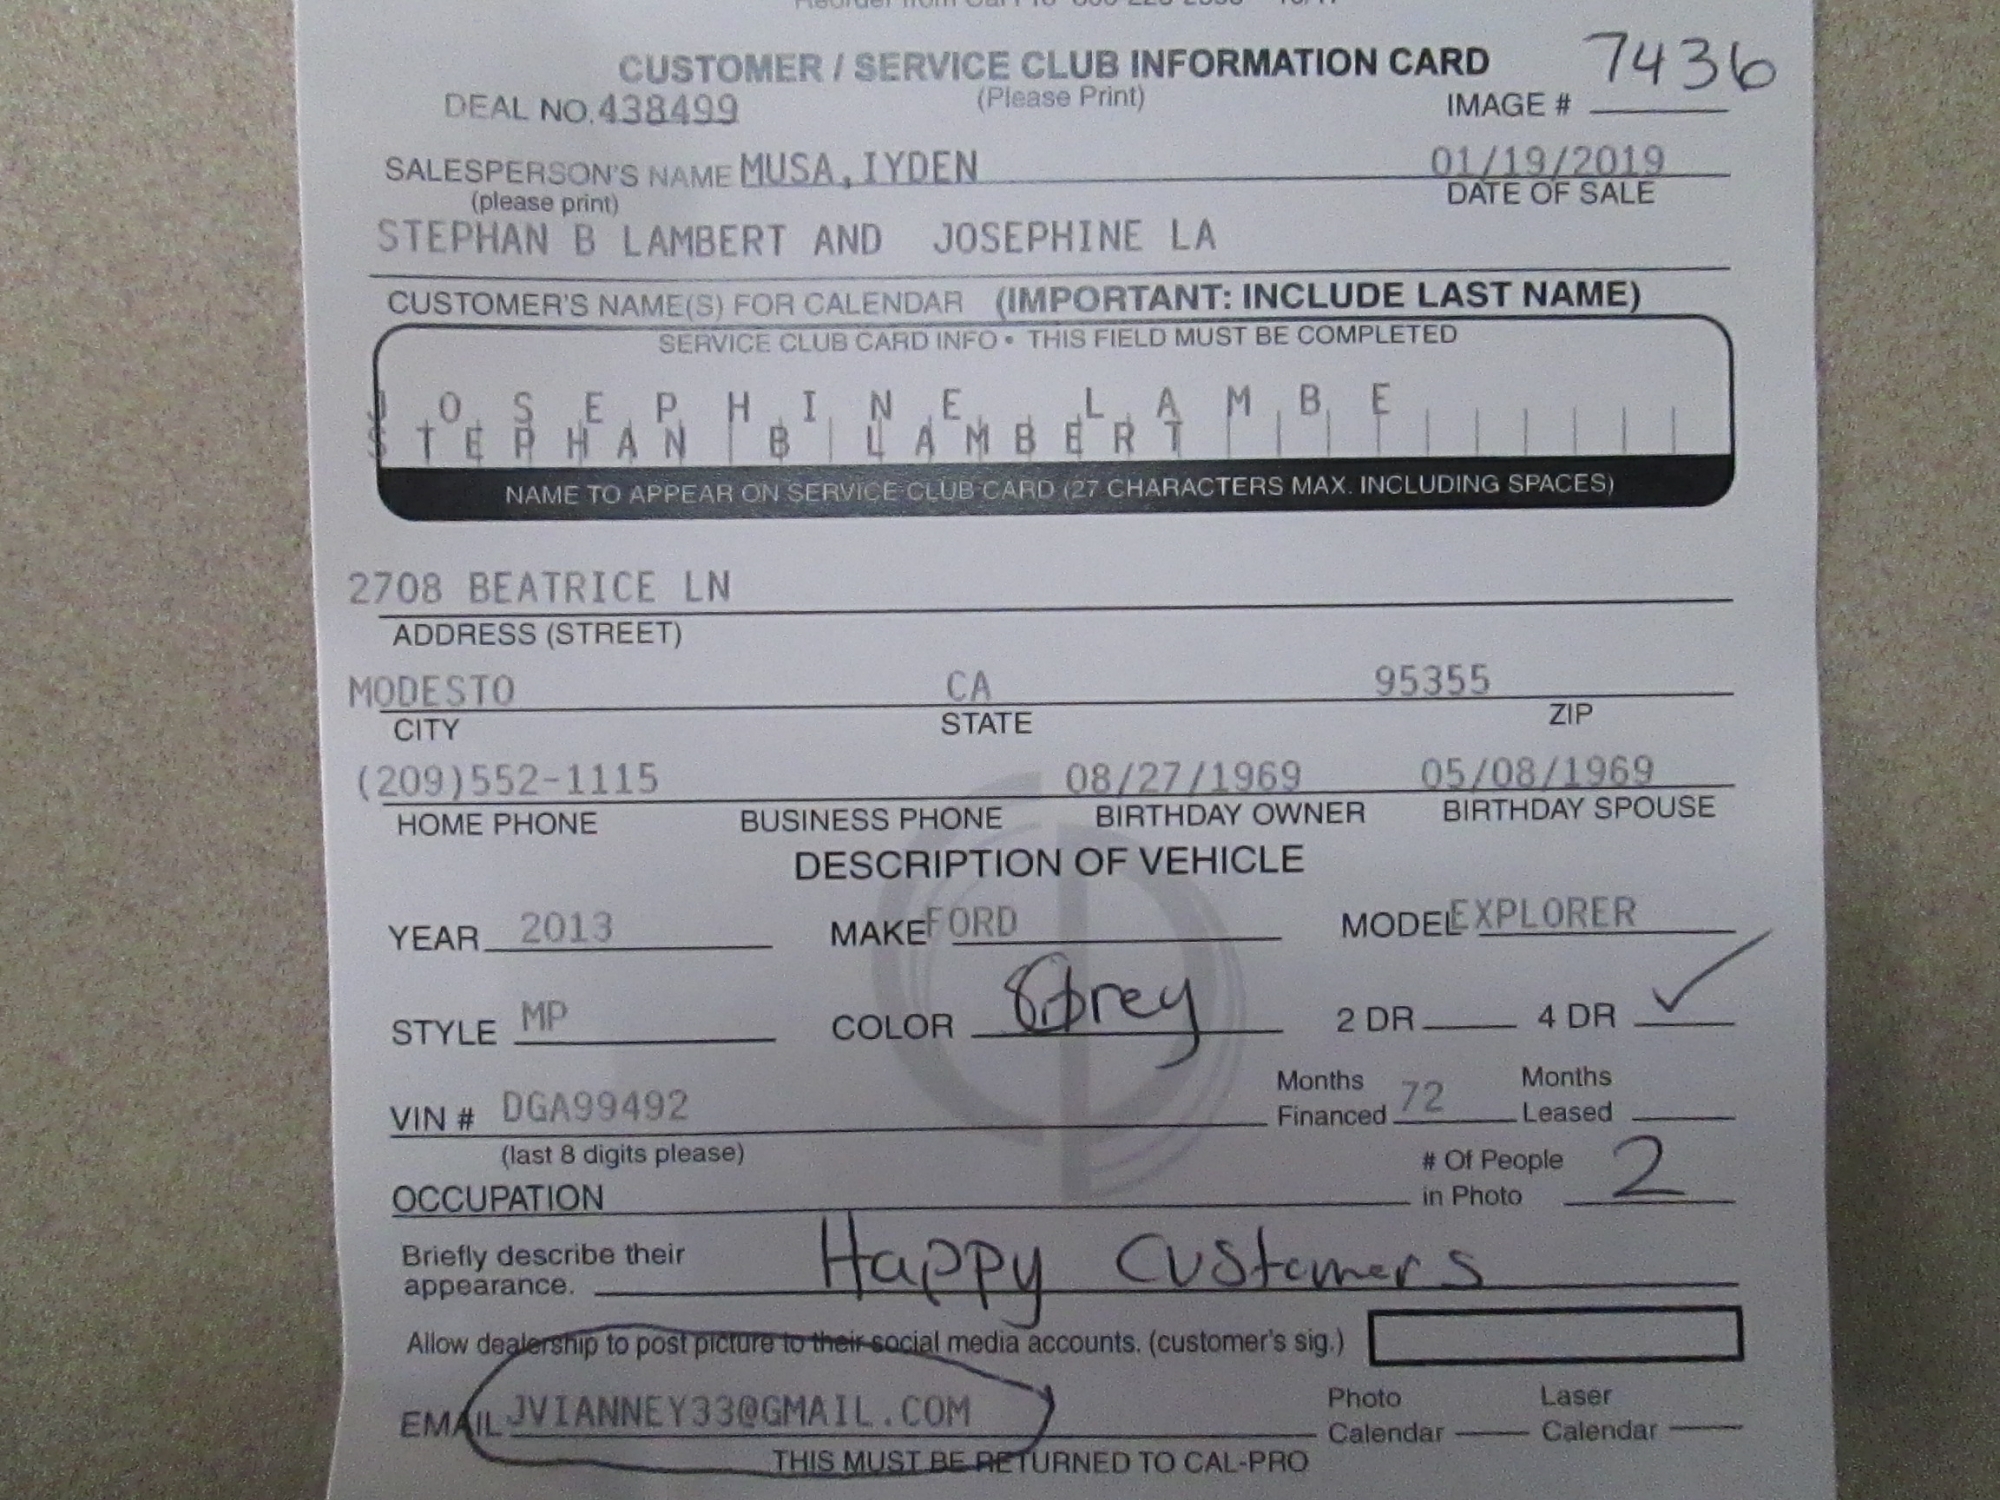 CUSTOMER / SERVICE CLUB INFORMATION CARD 7436
DEAL NO. 438499 (Please Print) IMAGE #
SALESPERSON'S NAME MUSA, IYDEN 01/19/2019
(please print) DATE OF SALE
STEPHAN B LAMBERT AND JOSEPHINE LA
CUSTOMER'S NAME(S) FOR CALENDAR (IMPORTANT: INCLUDE LAST NAME)
SERVICE CLUB CARD INFO • THIS FIELD MUST BE COMPLETED
JOSEPHINE LAMBE
STEPHAN B LAMBERT
NAME TO APPEAR ON SERVICE CLUB CARD (27 CHARACTERS MAX. INCLUDING SPACES)
2708 BEATRICE LN
ADDRESS (STREET)
MODESTO CA 95355
CITY STATE ZIP
(209)552-1115 08/27/1969 05/08/1969
HOME PHONE BUSINESS PHONE BIRTHDAY OWNER BIRTHDAY SPOUSE
DESCRIPTION OF VEHICLE
YEAR 2013 MAKE FORD MODEL EXPLORER
STYLE MP COLOR Grey 2 DR 4 DR ✓
VIN # DGA99492 Months Financed 72 Months Leased
(last 8 digits please)
OCCUPATION # Of People in Photo 2
Briefly describe their appearance. Happy Customers
Allow dealership to post picture to their social media accounts. (customer's sig.)
EMAIL JVIANNEY33@GMAIL.COM Photo Calendar Laser Calendar
THIS MUST BE RETURNED TO CAL-PRO